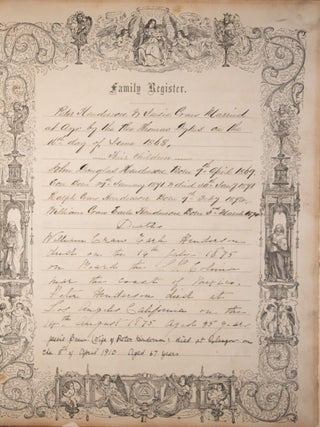 Family Register.
Peter Henderson & Susie Craw Married
at Ayr by the Rev Thomas Dykes on the
16th day of June 1868.
Their Children
John Douglas Henderson Born 7th April 1869
Son Born 29th January 1871 & died 30th Jany 1871
Ralph Craw Henderson Born 9th July 1872
William Craw Earle Henderson Born 5th March
Deaths
William Craw Earle Henderson
died on the 19th July 1875
on Board the S.S. Colima
near the coast of Mexico.
Peter Henderson died at
Los Angeles California on the
14th August 1875 aged 35 years
Craw (wife of Peter Henderson) died at Glasgow on
the 5th of April 1910 Aged 67 years